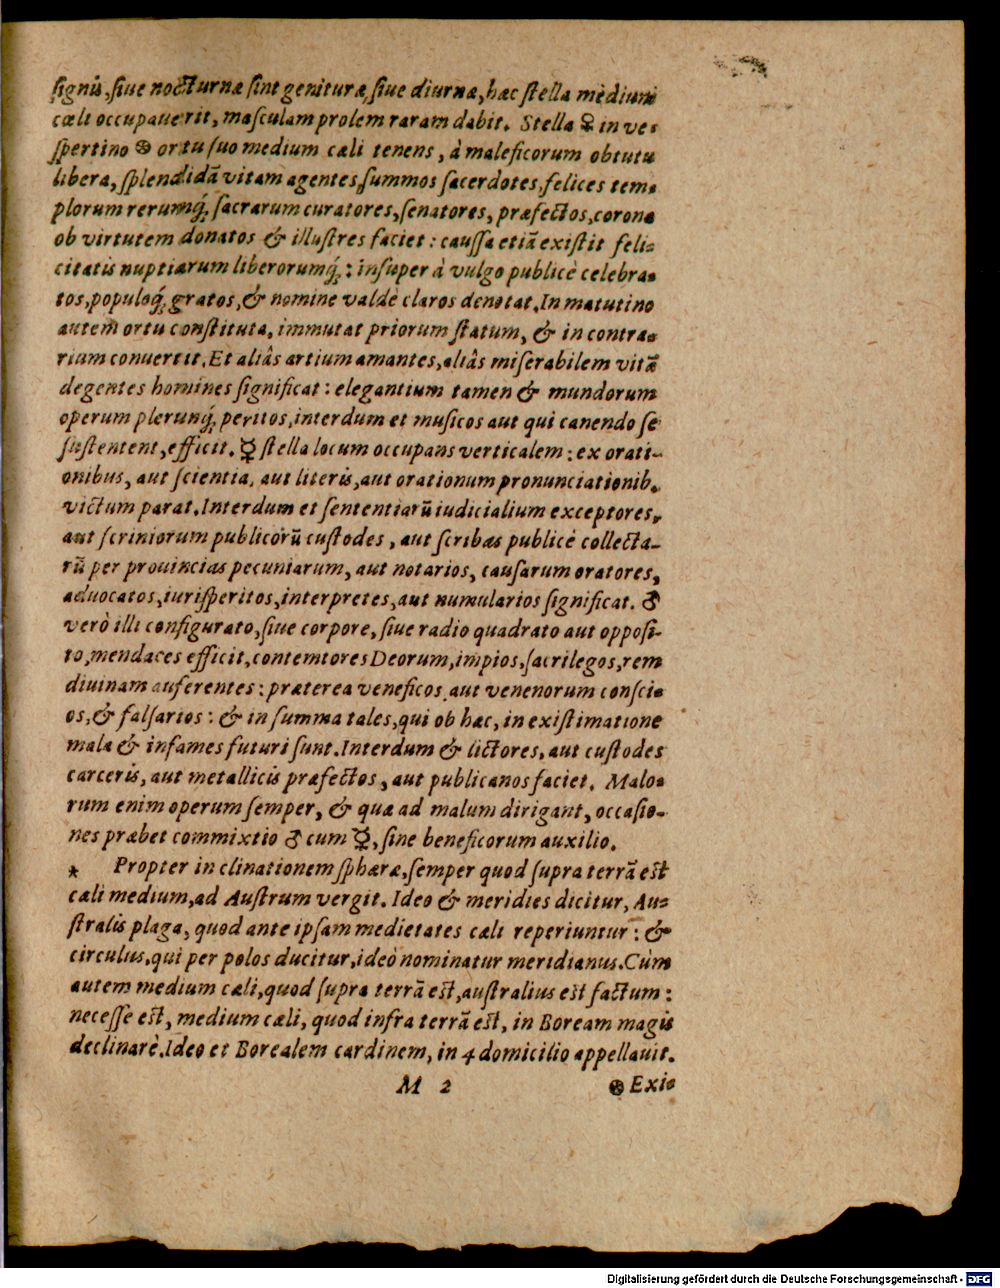 ſignis, ſiue nocturnæ ſint genituræ, ſiue diurnæ, hæc ſtella medium
cæli occupauerit, maſculam prolem raram dabit. Stella ♀ in ve⸗
ſpertino ⊛ ortu ſuo medium cæli tenens, à maleficorum obtutu
libera, ſplendidā vitam agentes, ſummos ſacerdotes, felices tem⸗
plorum rerumq́; ſacrarum curatores, ſenatores, præfectos, corona
ob virtutem donatos & illuſtres faciet: cauſſa etiā exiſtit feli⸗
citatis nuptiarum liberorumq́;: inſuper à vulgo publicè celebra⸗
tos, populoq́; gratos, & nomine valdè claros denotat. In matutino
autem ortu conſtituta, immutat priorum ſtatum, & in contra⸗
rium conuertit. Et aliâs artium amantes, aliâs miſerabilem vitā
degentes homines ſignificat: elegantium tamen & mundorum
operum plerunq́; peritos, interdum et muſicos aut qui canendo ſe
ſuſtentent, efficit. ☿ ſtella locum occupans verticalem: ex orati-
onibus, aut ſcientia, aut literis, aut orationum pronunciationib.
victum parat. Interdum et ſententiarū iudicialium exceptores,
aut ſcriniorum publicorū cuſtodes, aut ſcribas publicè collecta-
rū per prouincias pecuniarum, aut notarios, cauſarum oratores,
aduocatos, iuriſperitos, interpretes, aut numularios ſignificat. ♂
verò illi configurato, ſiue corpore, ſiue radio quadrato aut oppoſi-
to, mendaces efficit, contemtores Deorum, impios, ſacrilegos, rem
diuinam auferentes: præterea veneficos aut venenorum conſci⸗
os, & falſarios: & in ſumma tales, qui ob hæc, in exiſtimatione
mala & infames futuri ſunt. Interdum & lictores, aut cuſtodes
carceris, aut metallicis præfectos, aut publicanos faciet. Malo⸗
rum enim operum ſemper, & quæ ad malum dirigant, occaſio-
nes præbet commixtio ♂ cum ☿, ſine beneficorum auxilio.
* Propter inclinationem ſphæræ, ſemper quod ſupra terrā eſt
cæli medium, ad Auſtrum vergit. Ideo & meridies dicitur, Au⸗
ſtralis plaga, quod ante ipſam medietates cæli reperiuntur: &
circulus, qui per polos ducitur, ideò nominatur meridianus. Cùm
autem medium cæli, quod ſupra terrā eſt, auſtralius eſt factum:
neceſſe eſt, medium cæli, quod infra terrā eſt, in Boream magis
declinarè. Ideo et Borealem cardinem, in 4 domicilio appellauit.
M 2 ⊛ Exi⸗
Digitalisierung gefördert durch die Deutsche Forschungsgemeinschaft - DFG